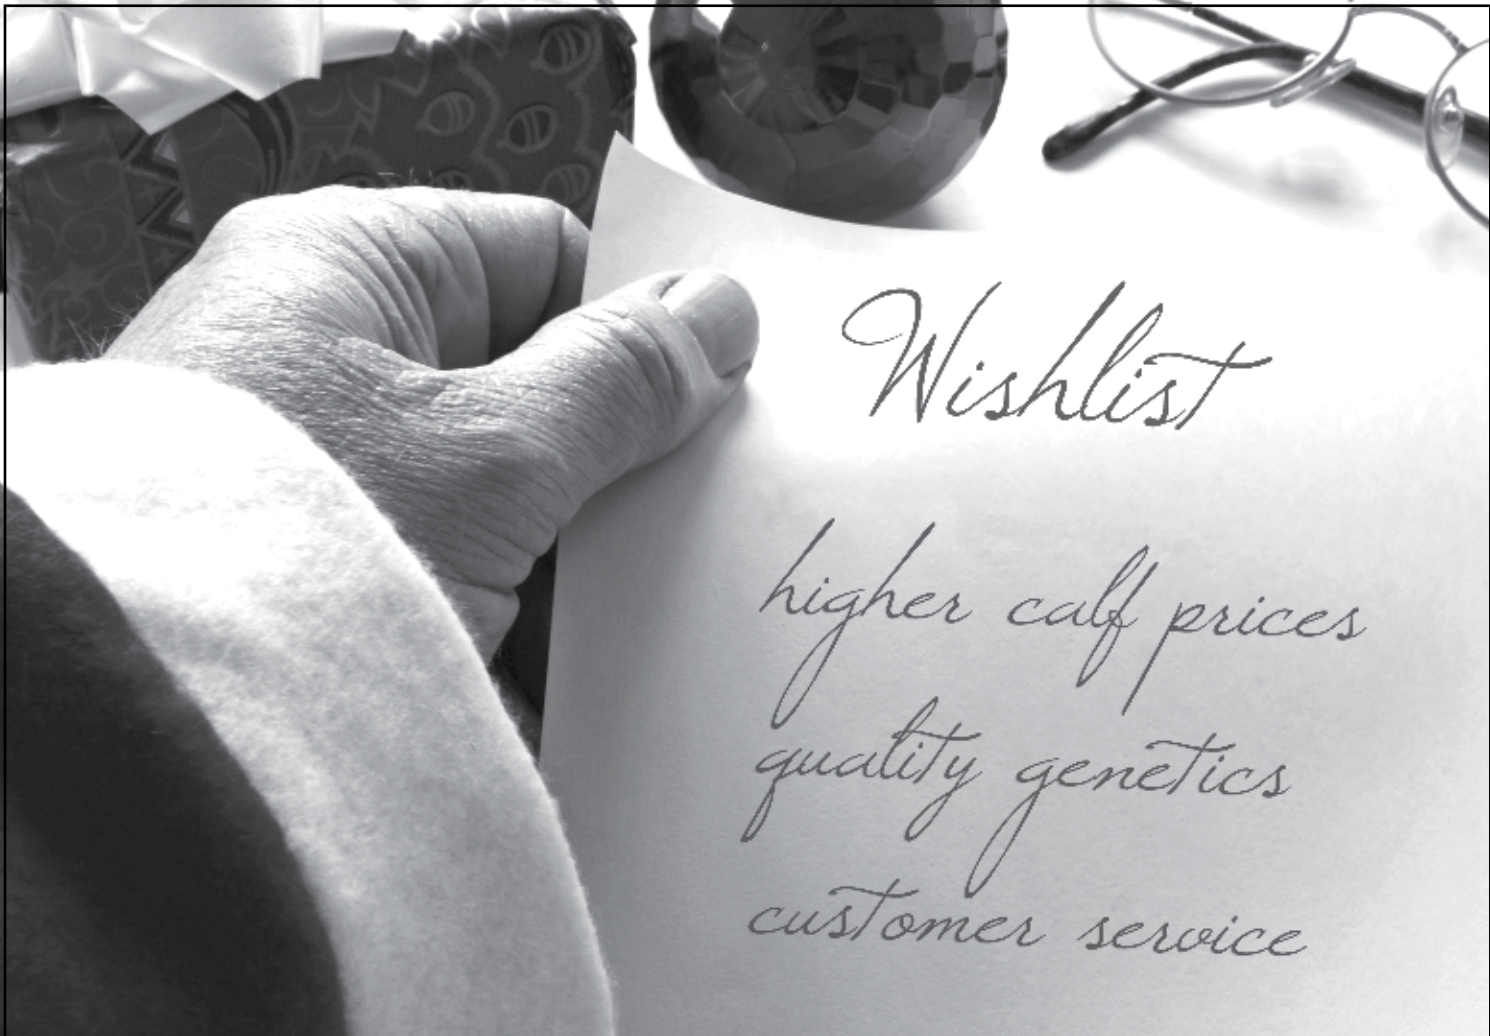 Wishlist
higher calf prices
quality genetics
customer service